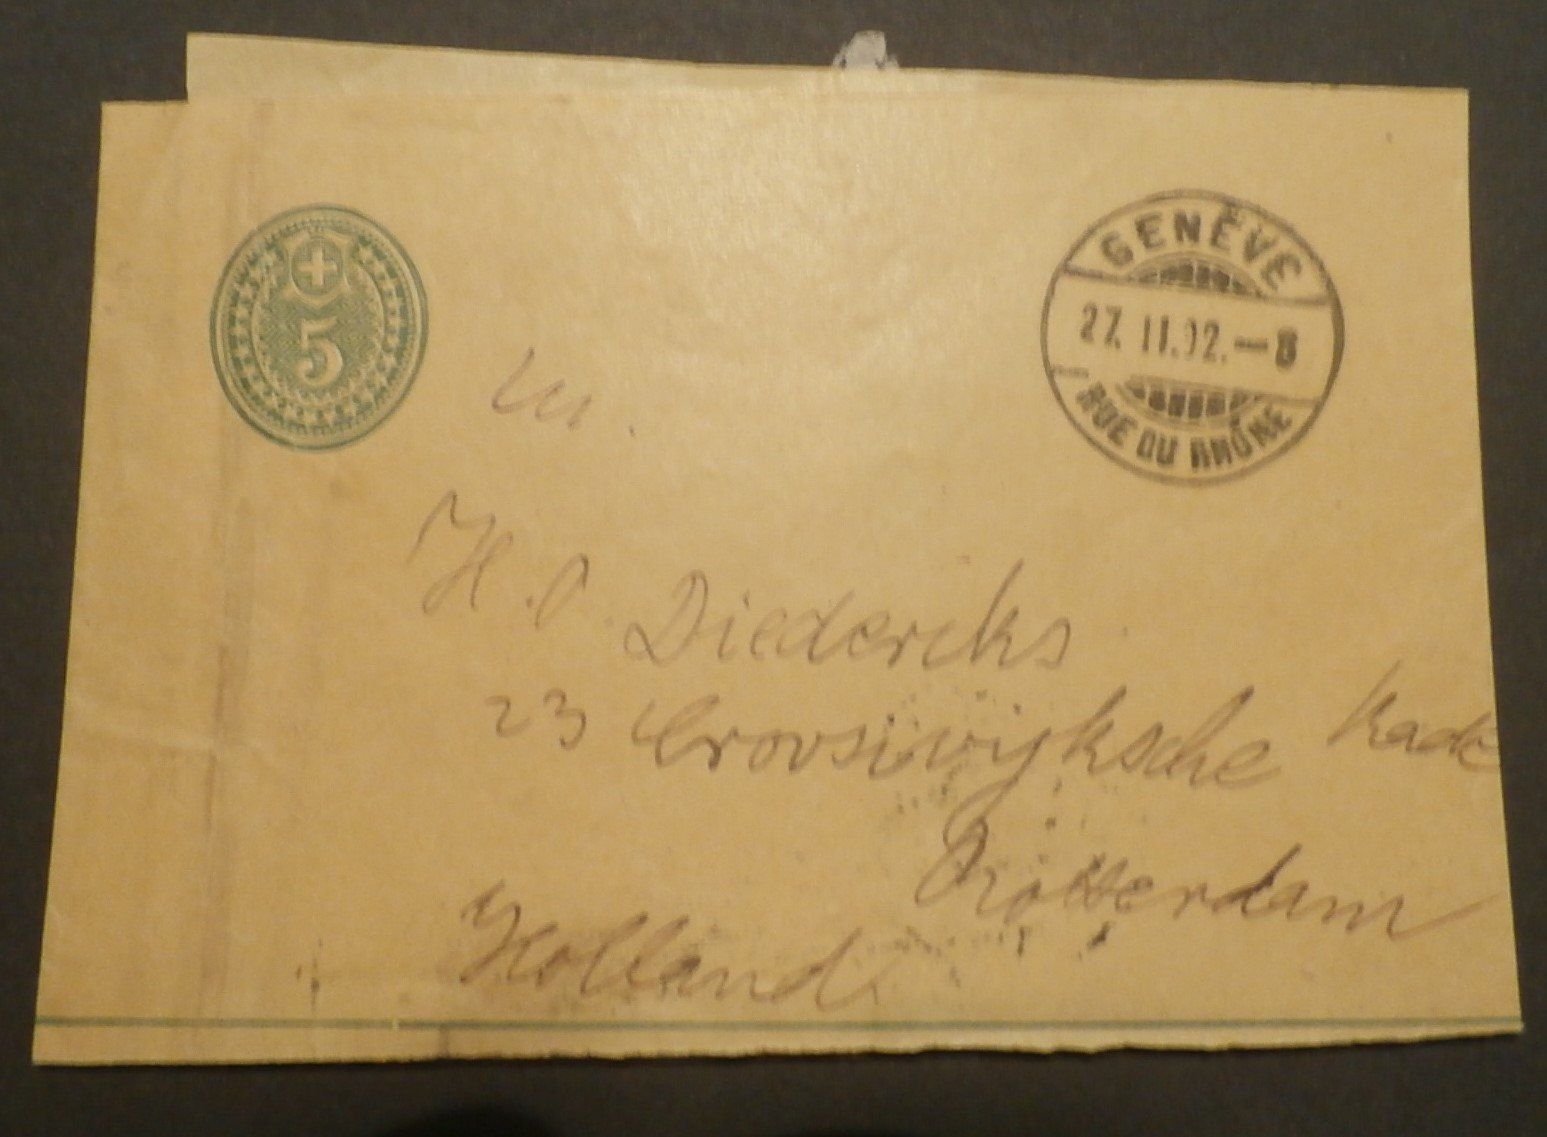 5
GENÈVE
27. II. 02. — 8
RUE DU RHÔNE
H. O. Diedericks
23 Crovsiwijksche Kade
Rotterdam
Holland